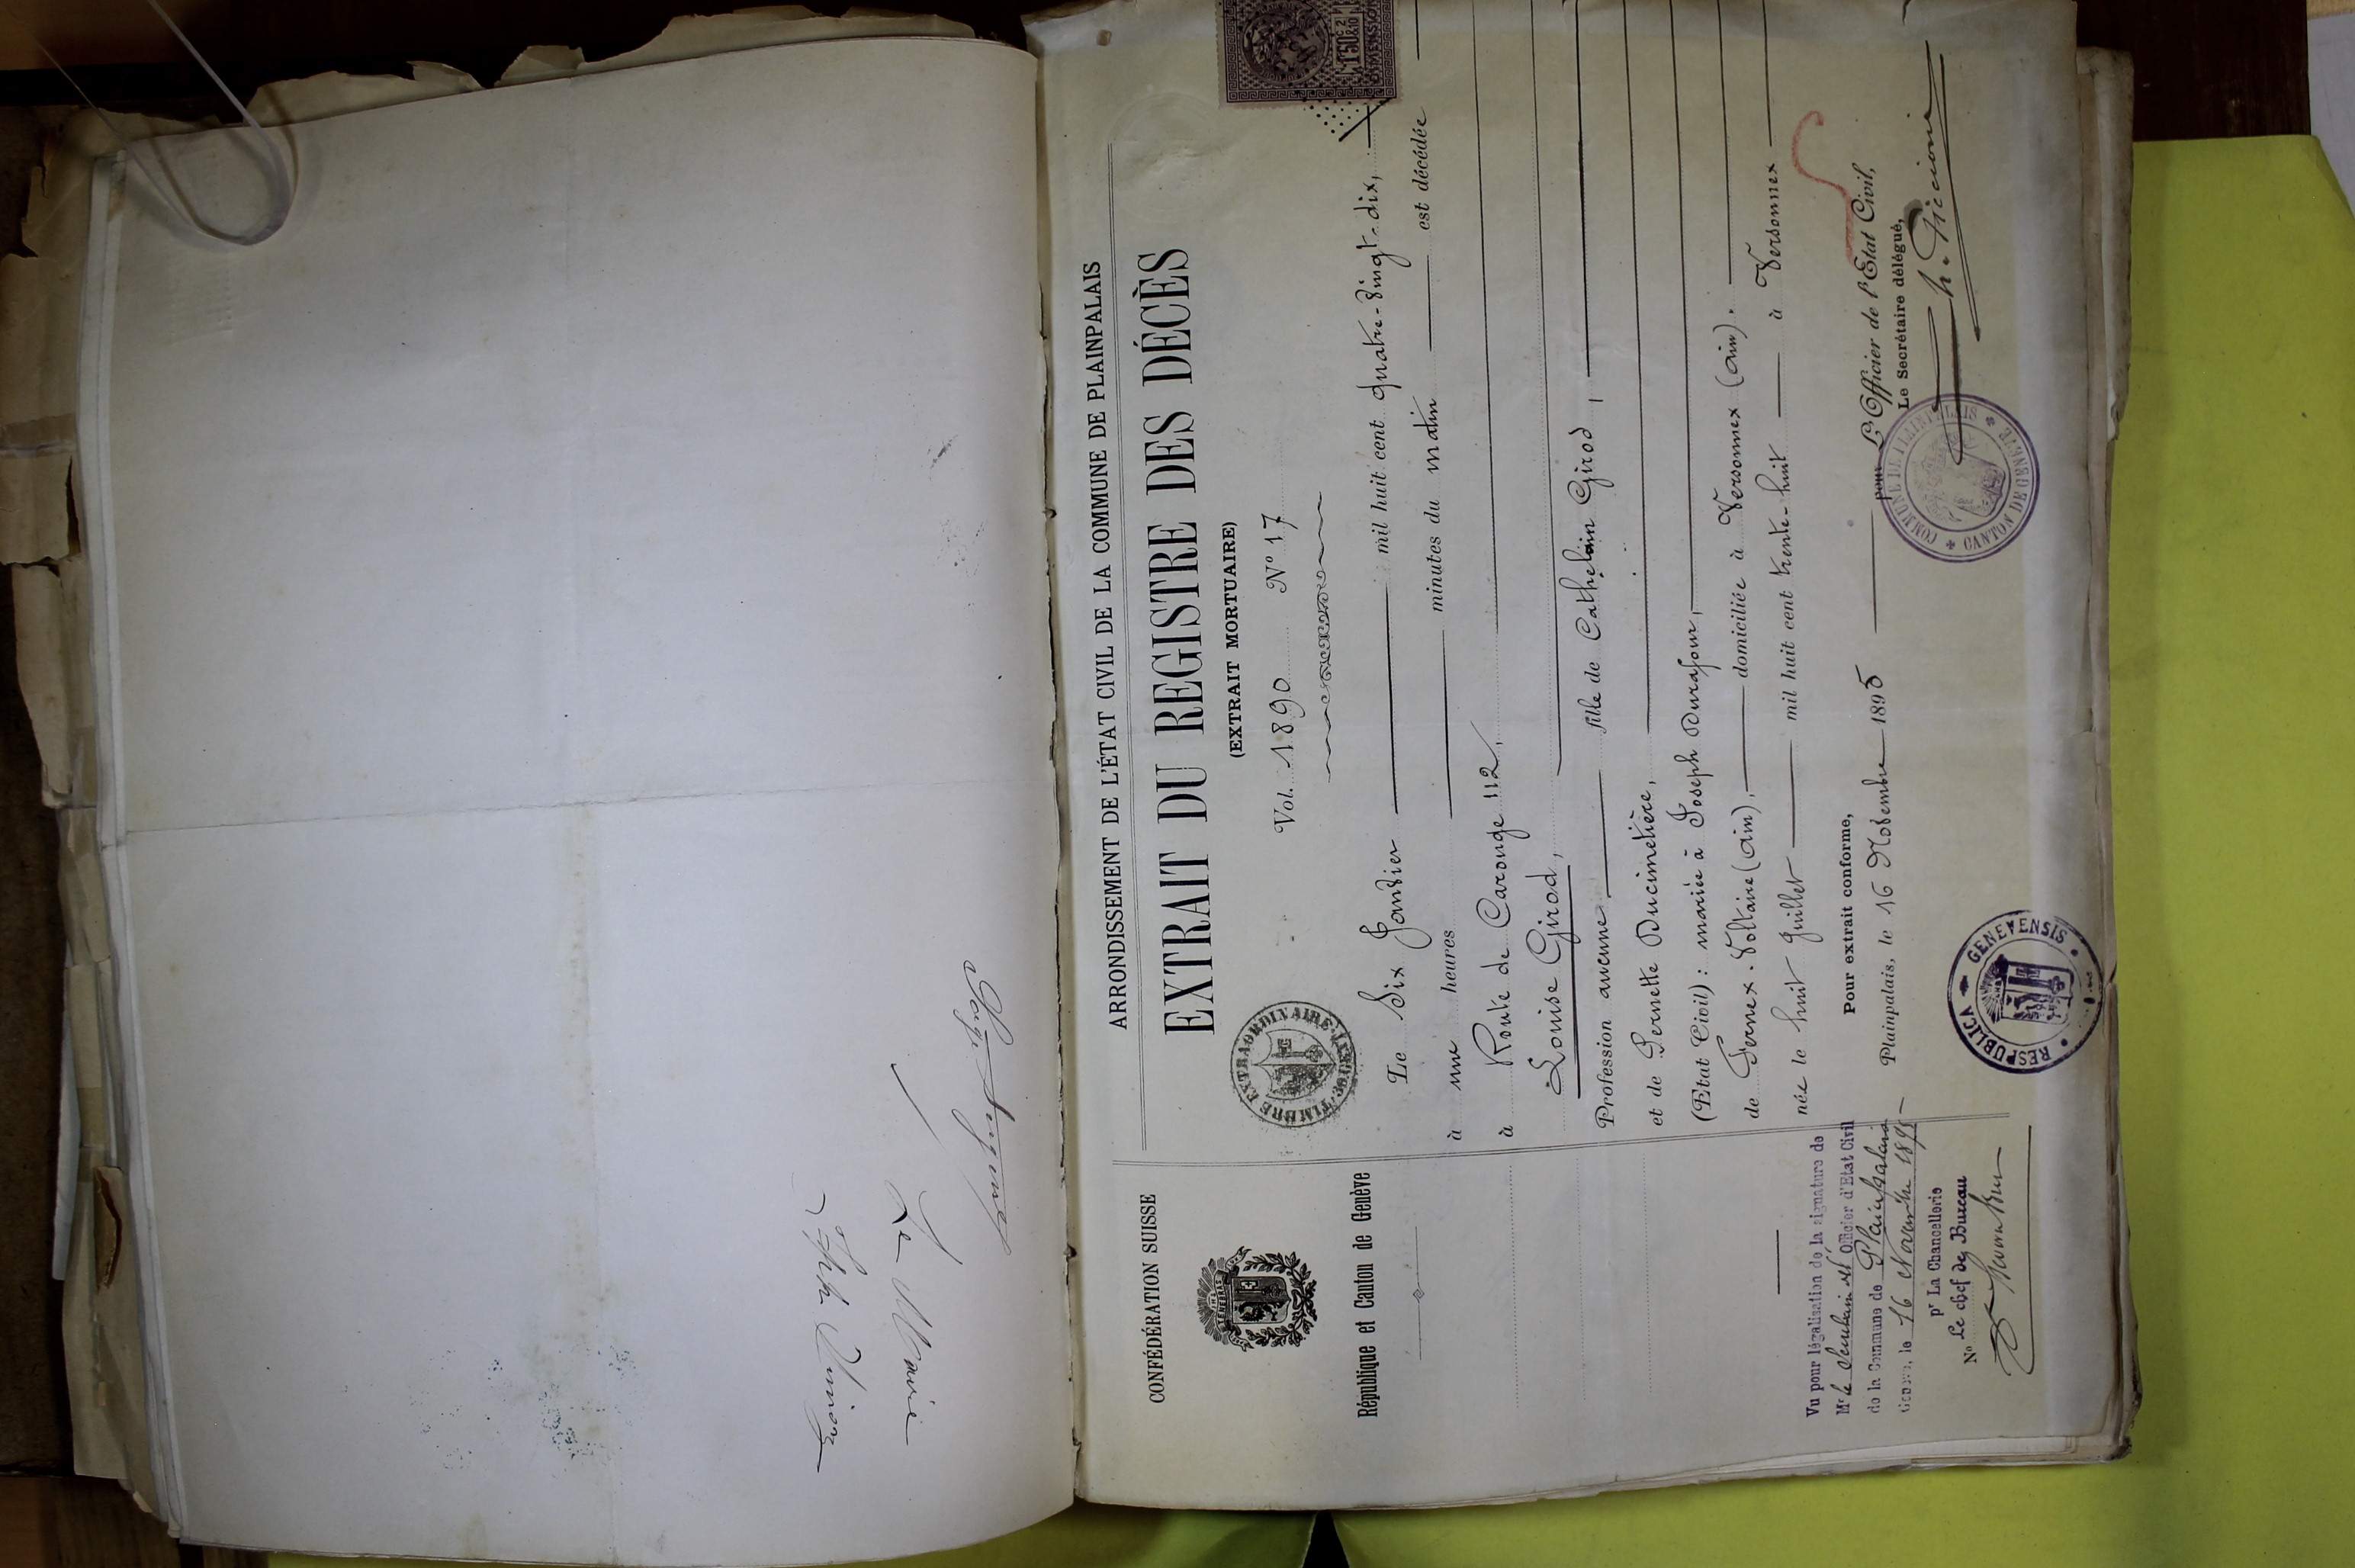 Le Maire
ARRONDISSEMENT DE L'ÉTAT CIVIL DE LA COMMUNE DE PLAINPALAIS
EXTRAIT DU REGISTRE DES DÉCÈS
(EXTRAIT MORTUAIRE)
Vol. 1890 N° 17
Le Six Janvier mil huit cent quatre-vingt-dix,
à une heures minutes du matin est décédée
à Route de Carouge 112,
Louise Girod,
Profession aucune fille de Cathelain Girod,
et de Pernette Ducimetière,
(Etat Civil) : mariée à Joseph Durafour,
de Fernex-Voltaire (Ain), domiciliée à Versonnex (Ain).
née le huit Juillet mil huit cent trente-huit à Versonnex
Pour extrait conforme,
Plainpalais, le 16 Novembre 1895
pour L'Officier de l'Etat Civil,
Le Secrétaire délégué,
h. Piccioni
COMMUNE DE PLAINPALAIS
CANTON DE GENÈVE
RESPUBLICA GENEVENSIS
TIMBRE EXTRAORDINAIRE
1F50c
CONFÉDÉRATION SUISSE
République et Canton de Genève
Vu pour légalisation de la signature de
Mr Officier d'Etat Civil
de la Commune de Plainpalais
Genève, le 16 Novembre 1895
pr La Chancellerie
N° Le chef de Bureau